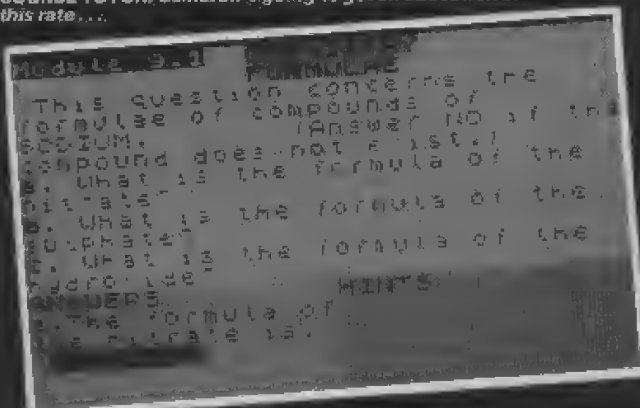 this rate...
Module 9.1
FORMULAE
This question concerns the
formulae of compounds of
SODIUM. (Answer NO if the
compound does not exist.)
a. What is the formula of the
nitrate?
b. What is the formula of the
sulphate?
c. What is the formula of the
hydroxide?
HINTS:
ANSWERS
a. The formula of
the nitrate is: